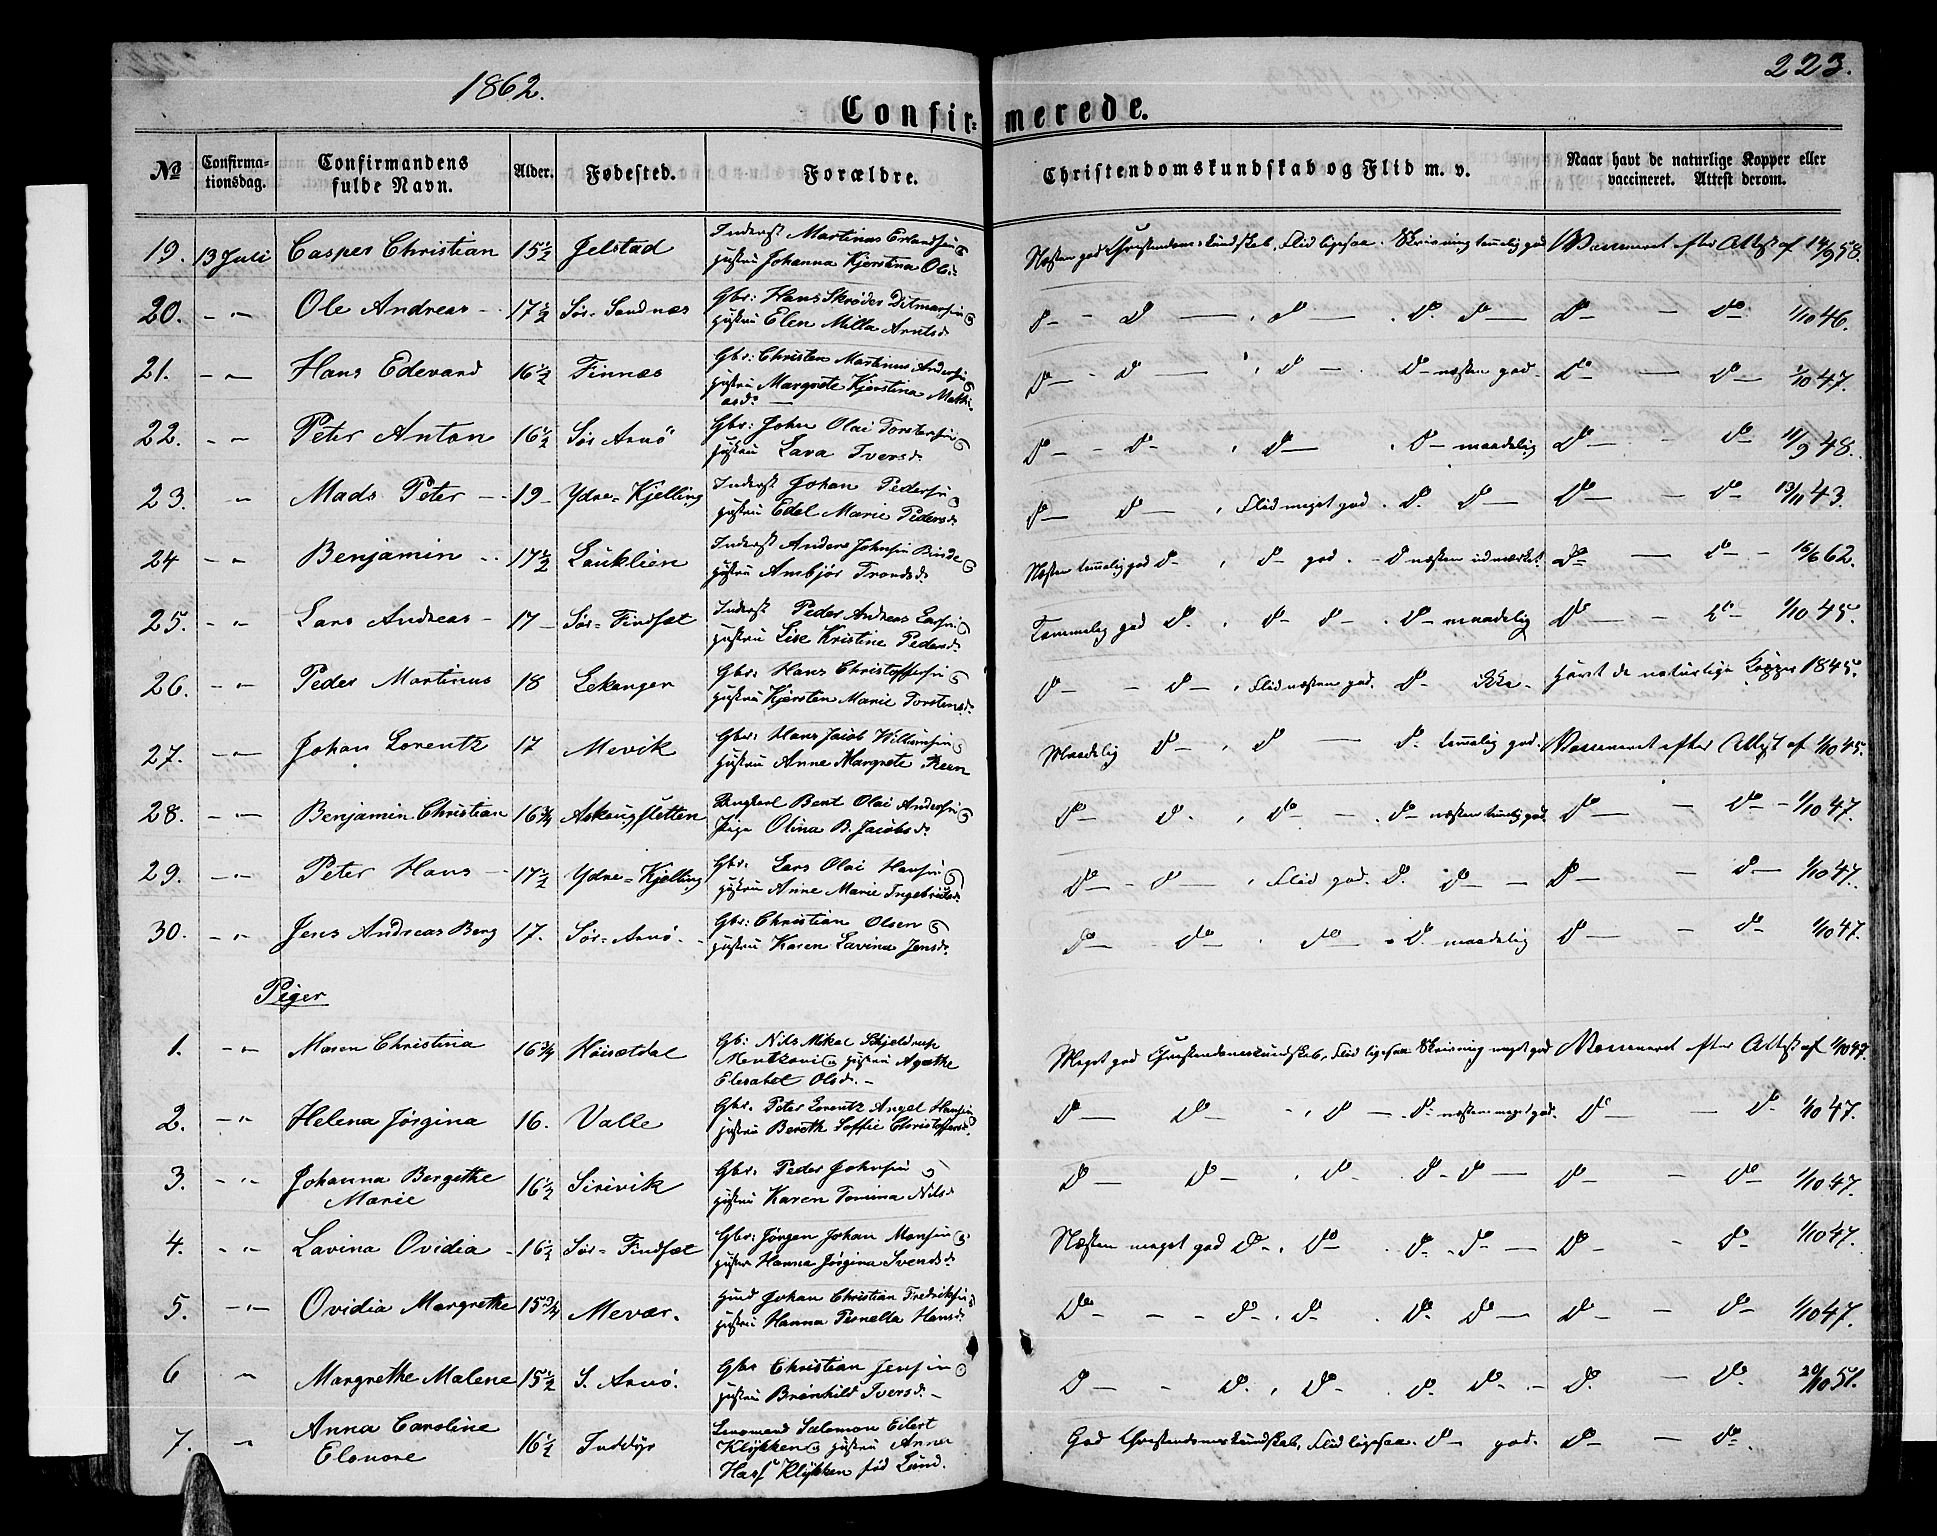 1862.
223.
Confir= merede.
No Confirma-tionsdag. Confirmandens fulde Navn. Alder. Fødested. Forældre. Christendomskundskab og Flid m. v. Naar havt de naturlige Kopper eller vaccineret. Attest derom.
19. 13 Juli Casper Christian 15½ Jelstad Inderst Martinus Erlandsen og Hustru Johanna Kjerstina Ols: Næsten god Christendomskundskab, Flid ligesaa. Skrivning temelig god Vaccineret efter Attest af 14/9 58.
20. - " - Ole Andreas - 17½ Sør-Sandnæs Gbr: Hans Skrøder Ditmarsen og Hustru Elen Milla Arntsd. Do - Do - , Do - . Do Do - Do - - Do 1/10 46.
21. - " - Hans Edevard 16½ Finnæs Gbr: Christen Martinus Andersen og Hustru Margrete Kjerstina Mathiasd: Do - Do - , Do - . Do - næsten god. Do - - Do - 1/10 47.
22. - " - Peter Anton 16½ Sør Arnö Gbr: John Olai Torstensen og Hustru Lava Iversd: Do - - Do - , Do - . Do - maadelig Do - - Do - 11/9 48.
23. " Mads Peter - 19 - Ydre-Kjelling Inderst Johan Pedersen og Hustru Edel Marie Pedersd: Do - Do - , Flid meget god. Do. Do - Do - - Do - 13/11 43.
24 - " - Benjamin - 17½ Lauklien Inderst Anders Johnsen Binde og Hustru Ambjör Trondsd: Næsten temelig god Do - , Do - god. - Do næsten udmærket. Do - - Do - - 16/6 62.
25. - " Lars Andreas - 17 - Sør-Findsæt Inderst Peder Andreas Larsen og Hustru Lise Kristine Pedersd: Temmelig god Do. , Do - Do - . Do - maadelig Do - - Do - 1/10 45.
26. - " Peder Martinus 18 Lekanger Gbr: Hans Christoffersen og Hustru Kjersten Marie Torstensd: Do - - Do - , Flid næsten god. Do - ikke - havt de naturlige Kopper 1845.
27. - " - Johan Lorentz 17 Mevik Gbr: Hans Jacob Willumsen og Hustru Anne Margrete Reen Maadelig Do - , Do - Do. temelig god. Vaccineret efter Attest af 1/10 45.
28. - " - Benjamin Christian 16¾ Askaugsletten Ungkarl Bent Olai Andersen og Pige Olina B. Jacobsd: Do - Do. , Do - . Do - næsten temelig god. Do - - Do - 1/10 47.
29. - " - Peter Hans - 17½ Ydre-Kjelling Gbr. Lars Olai Hansen og Hustru Anne Marie Ingebrittsd: Do - - Do - , Flid god. Do. Do - - Do - - Do - 1/10 47.
30. - " - Jens Andreas Berg 17. Sør-Arnö - Gbr: Christian Olsen og Hustru Karen Lavina Jensd: Do - - Do - . Do - . Do - maadelig Do - - Do - 1/10 47.
Piger
1. - " - Maren Christina 16¾ Höisætdal Gb: Nils Mikal Schjeldrup og Hustru Agathe Elesabet Olsd. - Meget god Christendomskundskab, Flid ligesaa Skrivning meget god Vaccineret efter Attest af 1/10 47.
2. - " - Helena Jörgina 16. Valle Gbr. Peter Lorentz Angel Hansen og Hustru Bereth Soffie Christoffersd. Do - Do - - , Do - . Do - næsten meget god. Do - - Do. 1/10 47.
3. - " - Johanna Bergethe Marie 16½ Sirivik Gbr. Peder Johnsen og Hustru Karen Tomina Nilsd. Do - Do - . Do - Do - Do - Do - - Do - 1/10 47.
4. - " - Lavina Ovidia - 16½ Sør-Findsæt Gbr: Jörgen Johan Monsen og Hustru Hanna Jörgina Svendsd: Næsten meget god Do - , Do - . Do - Do - Do - - Do - 1/10 47.
5. - " - Ovidia Margrethe 15¾ Mevær. Hmd Johan Christian Fredriksen og Hustru Hanna Pernella Hansd: Do - - - Do - . Do - . Do - Do - Do - - Do - 1/10 47.
6 " Margrethe Malene 15½ S. Arnö. Gbr Christian Jensen og Hustru Brønhild Iversd. - Do - - Do. , Do - . Do - Do - - Do. - Do. 20/10 51.
7. " Anna Caroline Elonore 16½ Inddyr Salomon Eilert Klykken og Hustru Anna Klykken fød Lund. God Christendomskundskab, Flid ligesaa. Do - god. Do - - Do - .